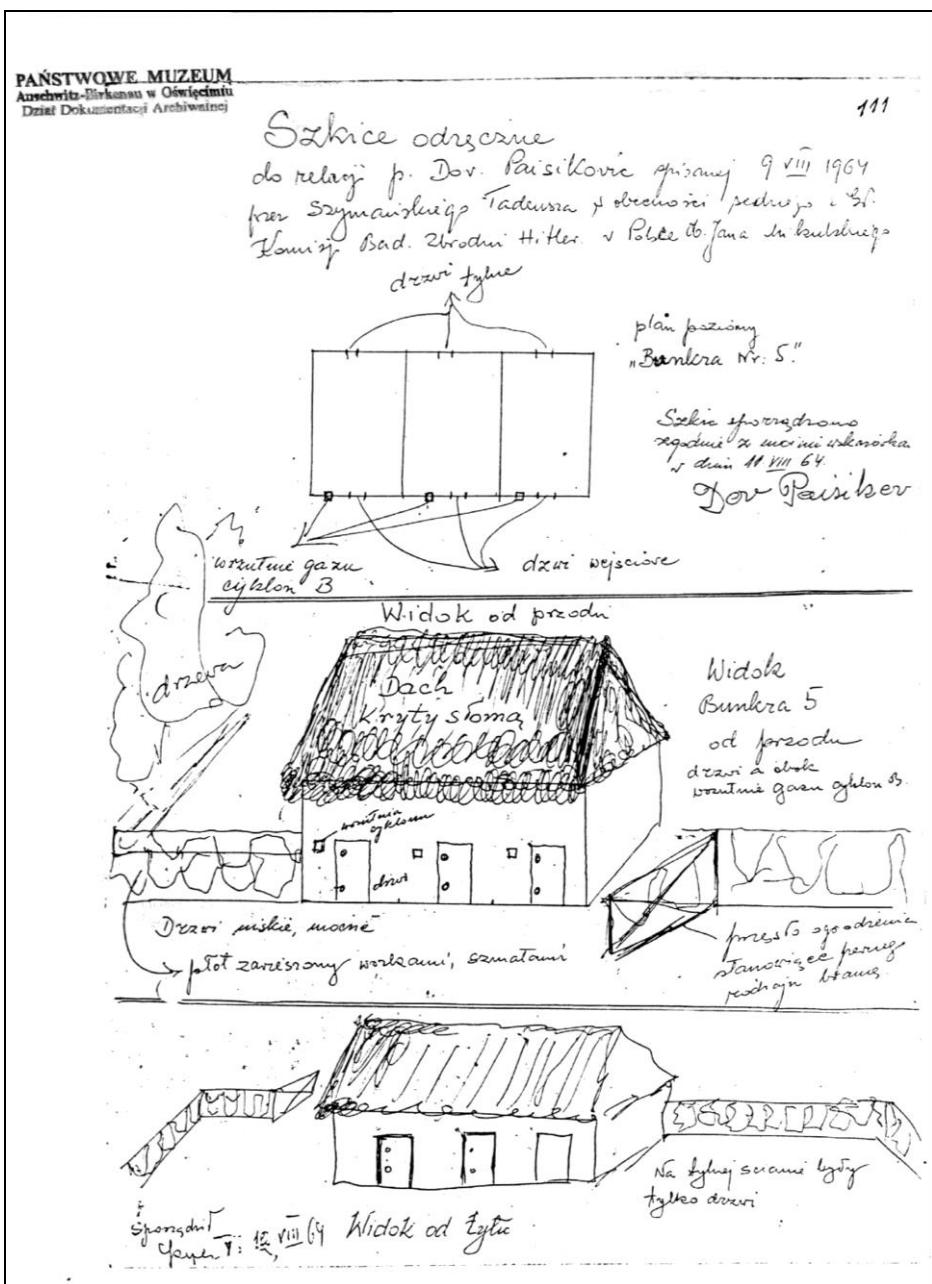 PAŃSTWOWE MUZEUM
Auschwitz-Birkenau w Oświęcimiu
Dział Dokumentacji Archiwalnej
111
Szkice odręczne
do relacji p. Dov. Paisikovic spisanej 9 VIII 1964
przez Szymańskiego Tadeusza w obecności sędziego i Gł.
Komisji Bad. Zbrodni Hitler. w Polsce Jana Mikulskiego
drzwi tylne
plan poziomy
„Bunkra Nr: 5."
Szkic sporządzono
zgodnie z moimi wskazówka
w dniu 11 VIII 64.
Dov Paisikov
wrzutnie gazu
cyklon B
drzwi wejściowe
Widok od przodu
drzewa
Dach
Kryty słomą
Widok
Bunkra 5
od przodu
drzwi a obok
wrzutnie gazu cyklon B.
wrzutnia
cyklonu
drzwi
Drzwi niskie, mocne
płot zawieszony workami, szmatami
przęsło ogrodzenia
stanowiące pewnego
rodzaju bramę
Na tylnej ścianie były
tylko drzwi
Sporządził
VIII 64 Widok od tyłu